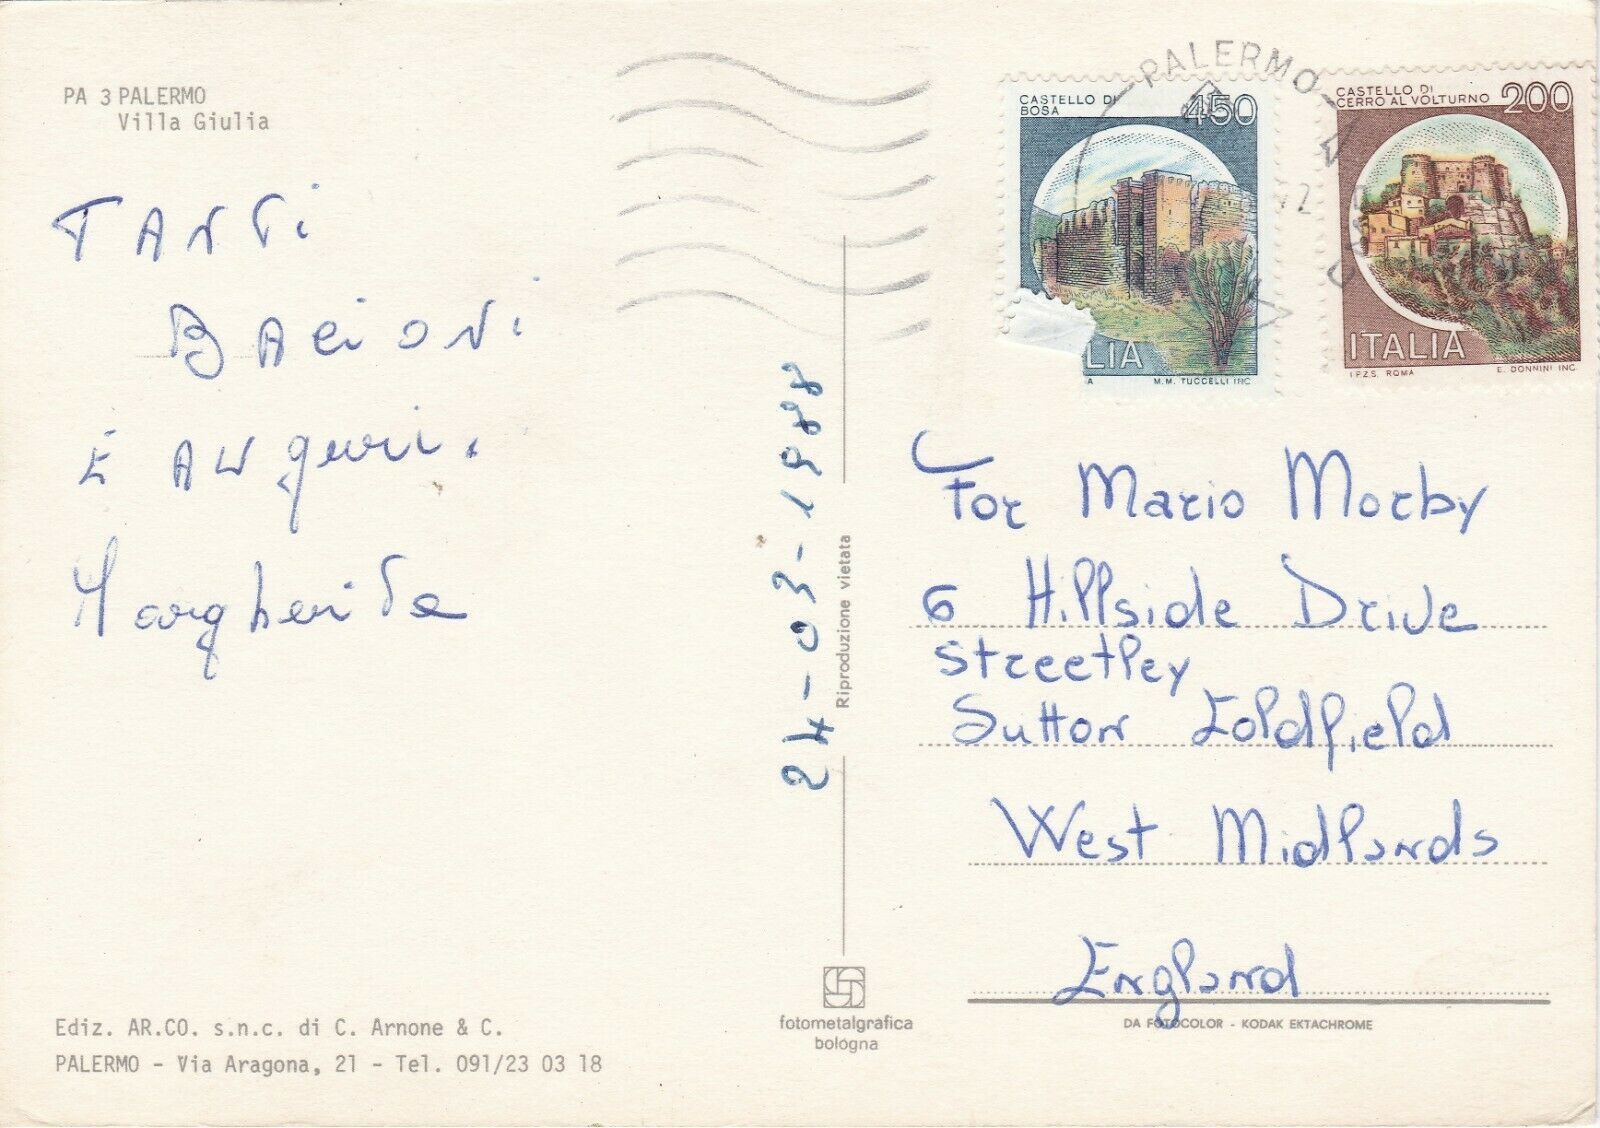 PA 3 PALERMO
Villa Giulia
TANTI
BACIONI
E AUguri.
Margherita
Ediz. AR.CO. s.n.c. di C. Arnone & C.
PALERMO - Via Aragona, 21 - Tel. 091/23 03 18
24-03-1988
Riproduzione vietata
fotometalgrafica
bologna
PALERMO
CASTELLO DI
BOSA
450
LIA
A
M.M. TUCCELLI INC
CASTELLO DI
CERRO AL VOLTURNO
200
ITALIA
I.P.Z.S. ROMA
E. DONNINI INC.
For Mario Morby
6 Hillside Drive
Streetley
Sutton Coldfield
West Midlands
England
DA FOTOCOLOR - KODAK EKTACHROME